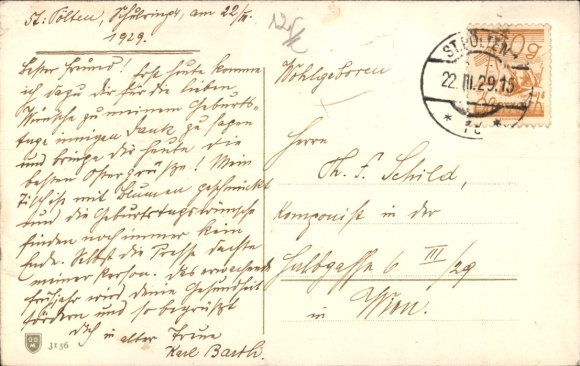 St. Pölten, Schulring 4, am 22/III.
1929.
Bester Freund! Erst heute komme
ich dazu dir für die lieben
Wünsche zu meinem Geburts-
tage innigen Dank zu sagen
und bringe dir heute die
besten Ostergrüße! Mein
Tisch ist mit Blumen geschmückt
und die Geburtstagswünsche
finden noch immer kein
Ende. Selbst die Presse dachte
meiner Person. Das erwachende
Frühjahr wird deine Gesundheit
fördern und so begrüßt
Dich in alter Treue
Karl Bartl.
3156
ST. PÖLTEN
22.III.29.15
* 1e *
Wohlgeboren
Herrn
Th. F. Schild,
Komponist in der
gasse 6 III/29
in Wien.